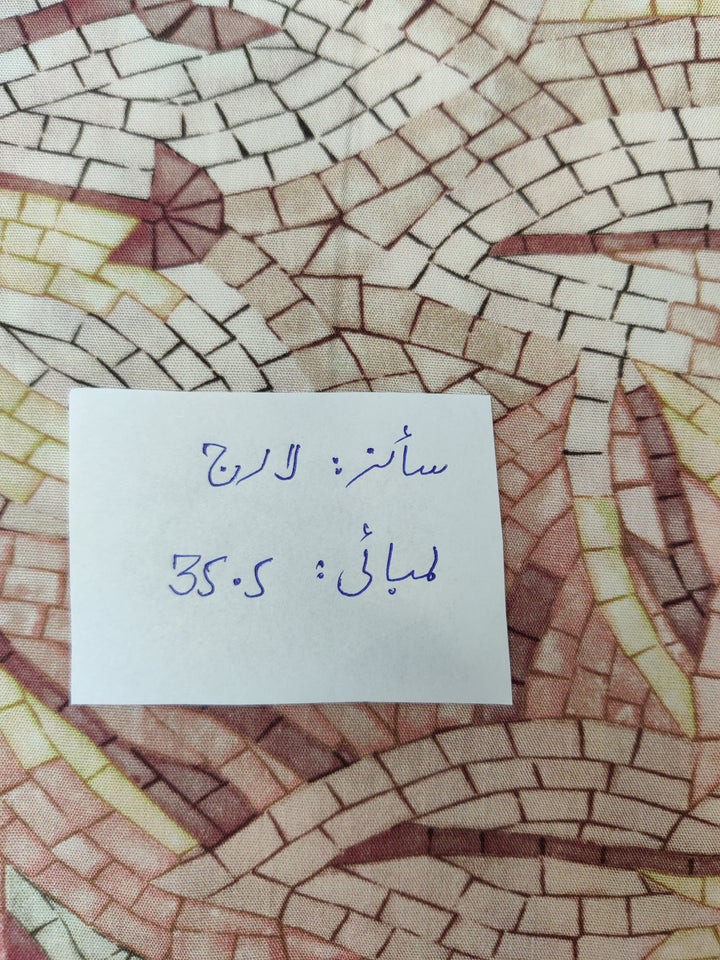 سائز: لارج
لمبائی: 35.5